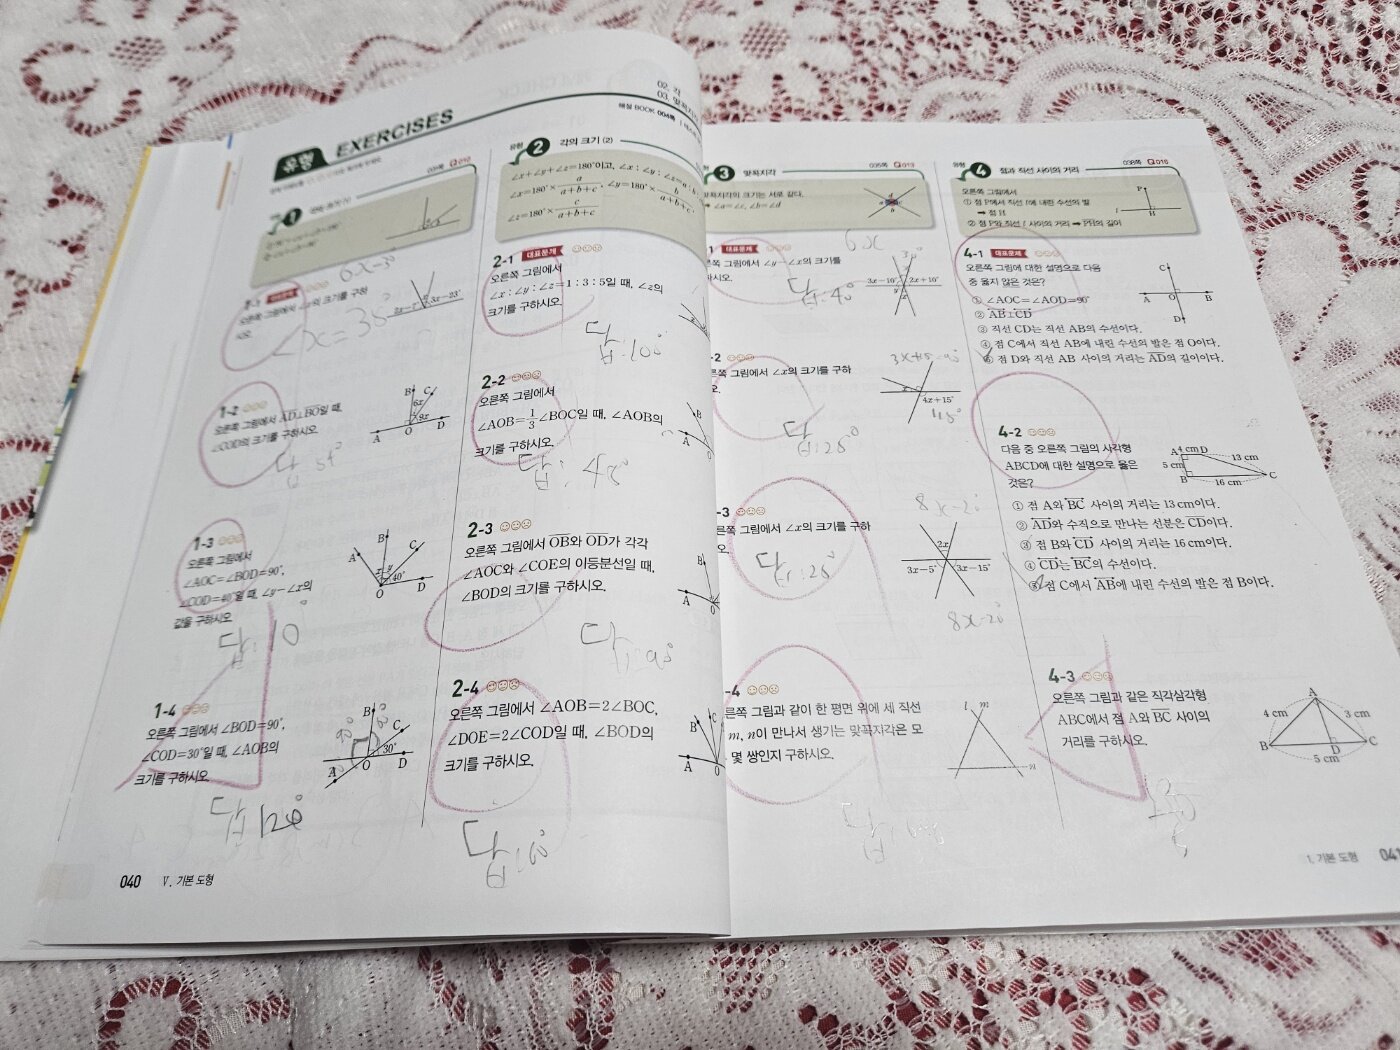 유형 EXERCISES
02. 각
해설 BOOK 004쪽
009쪽 Q 012
1
6x-3°
오른쪽 그림에서 ∠x의 크기를 구하
시오.
2x-7° 3x-23°
∠x=35°
1-2
오른쪽 그림에서 AD⊥BO일 때,
∠COD의 크기를 구하시오.
B C
6x
9x
A O D
답 54°
1-3
오른쪽 그림에서
∠AOC=∠BOD=90°,
∠COD=40°일 때, ∠y-∠x의
값을 구하시오.
A B C
x y
40°
O D
답: 10°
1-4
오른쪽 그림에서 ∠BOD=90°,
∠COD=30°일 때, ∠AOB의
크기를 구하시오.
B C
90°
30°
A O D
답
040 Ⅴ. 기본 도형
유형 2 각의 크기 (2)
∠x+∠y+∠z=180°이고, ∠x : ∠y : ∠z=a : b
∠x=180°×a/(a+b+c), ∠y=180°×b/(a+b+c),
∠z=180°×c/(a+b+c)
2-1 대표문제
오른쪽 그림에서
∠x : ∠y : ∠z=1 : 3 : 5일 때, ∠z의
크기를 구하시오.
답:100°
2-2
오른쪽 그림에서
∠AOB=1/3∠BOC일 때, ∠AOB의
크기를 구하시오.
B
A
O
답: 45°
2-3
오른쪽 그림에서 OB와 OD가 각각
∠AOC와 ∠COE의 이등분선일 때,
∠BOD의 크기를 구하시오.
B
A
O
답:90°
2-4
오른쪽 그림에서 ∠AOB=2∠BOC,
∠DOE=2∠COD일 때, ∠BOD의
크기를 구하시오.
B C
A O
답:60°
3 맞꼭지각
005쪽 Q 013
맞꼭지각의 크기는 서로 같다.
➔ ∠a=∠c, ∠b=∠d
1 대표문제
6x
른쪽 그림에서 ∠y-∠x의 크기를
하시오.
3x-10° 2x+10°
답:40°
-2
른쪽 그림에서 ∠x의 크기를 구하
오.
3x+15=90°
x
4x+15°
답:25°
-3
른쪽 그림에서 ∠x의 크기를 구하
오.
8x-20°
2x
3x-5° 3x-15°
8x-20°
답:25°
-4
른쪽 그림과 같이 한 평면 위에 세 직선
m, n이 만나서 생기는 맞꼭지각은 모
몇 쌍인지 구하시오.
l m
n
답
유형 4 점과 직선 사이의 거리
008쪽 Q 016
오른쪽 그림에서
① 점 P에서 직선 l에 내린 수선의 발
➔ 점 H
② 점 P와 직선 l 사이의 거리 ➔ PH의 길이
P
l H
4-1 대표문제
오른쪽 그림에 대한 설명으로 다음
중 옳지 않은 것은?
① ∠AOC=∠AOD=90°
② AB⊥CD
③ 직선 CD는 직선 AB의 수선이다.
④ 점 C에서 직선 AB에 내린 수선의 발은 점 O이다.
⑤ 점 D와 직선 AB 사이의 거리는 AD의 길이이다.
C
A O B
D
4-2
다음 중 오른쪽 그림의 사각형
ABCD에 대한 설명으로 옳은
것은?
A 4 cm D
13 cm
5 cm
B 16 cm C
① 점 A와 BC 사이의 거리는 13 cm이다.
② AD와 수직으로 만나는 선분은 CD이다.
③ 점 B와 CD 사이의 거리는 16 cm이다.
④ CD는 BC의 수선이다.
⑤ 점 C에서 AB에 내린 수선의 발은 점 B이다.
4-3
오른쪽 그림과 같은 직각삼각형
ABC에서 점 A와 BC 사이의
거리를 구하시오.
A
4 cm 3 cm
B D C
5 cm
1. 기본 도형 041